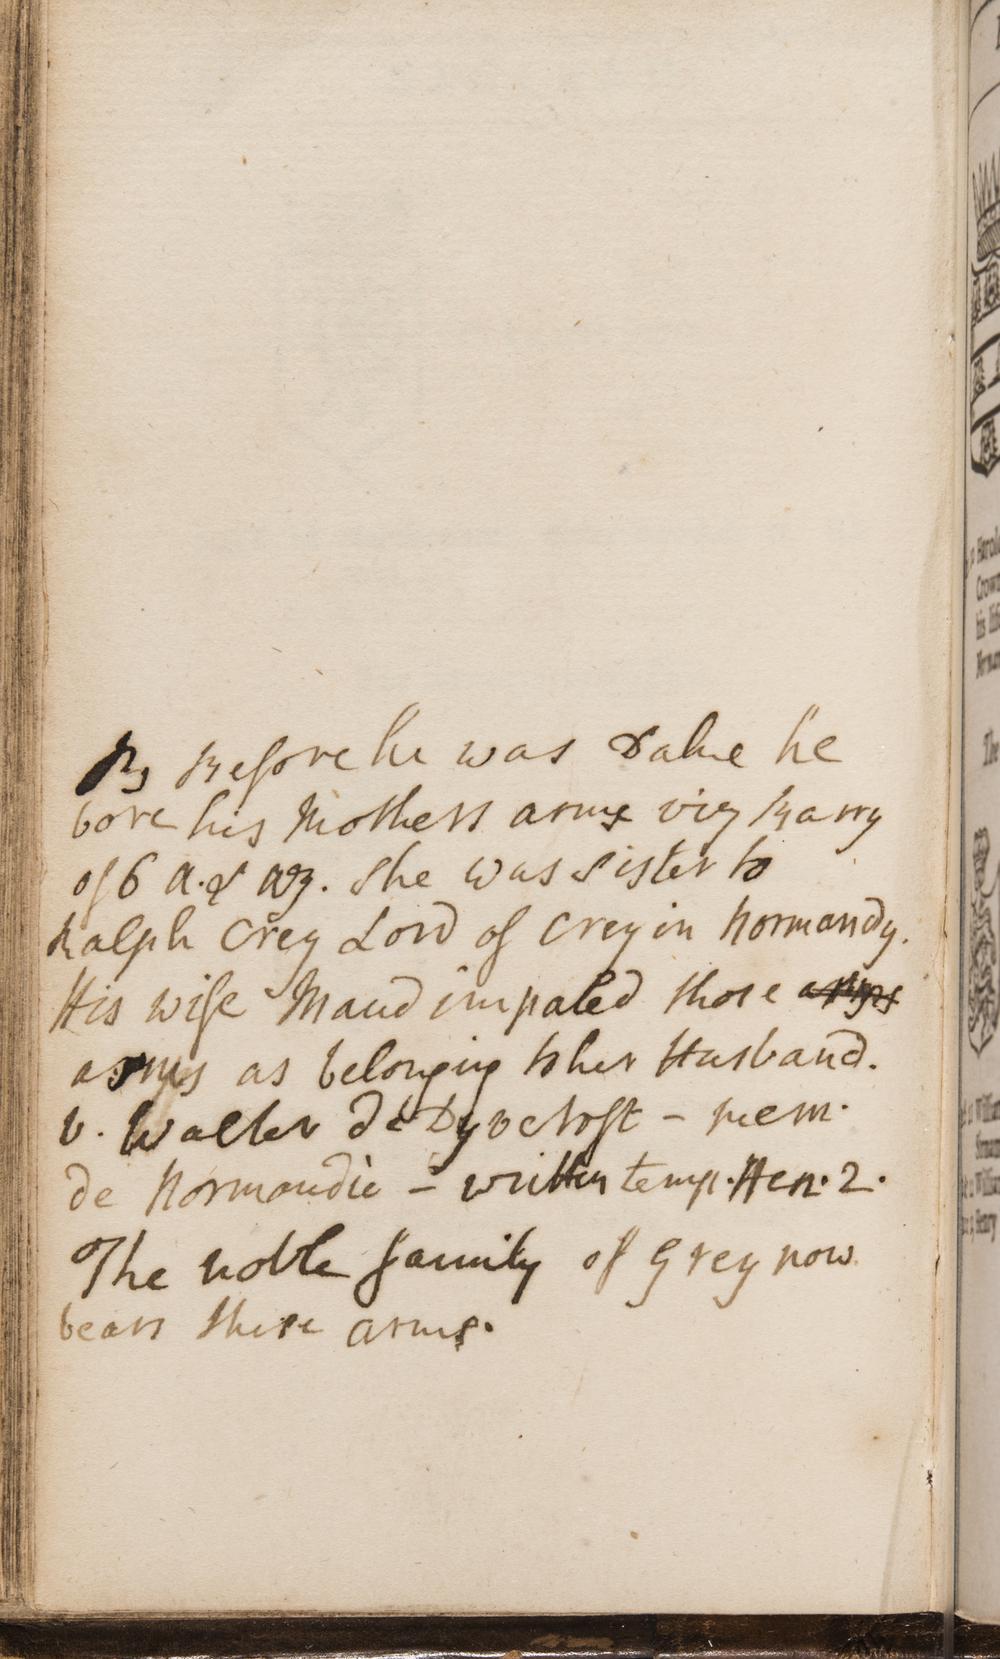 Before he was Duke he
bore his Mothers arms viz Barry
of 6 A. & Az. She was Sister to
Ralph Crey Lord of Crey in Normandy.
His wife Maud impaled those arms
arms as belonging to her Husband.
v. Walter de Dyvecroft - mem.
de Normandie - written temp. Hen. 2.
The noble family of Grey now
bears these arms.
Harold
Crown
his life
The
William
William
Henry